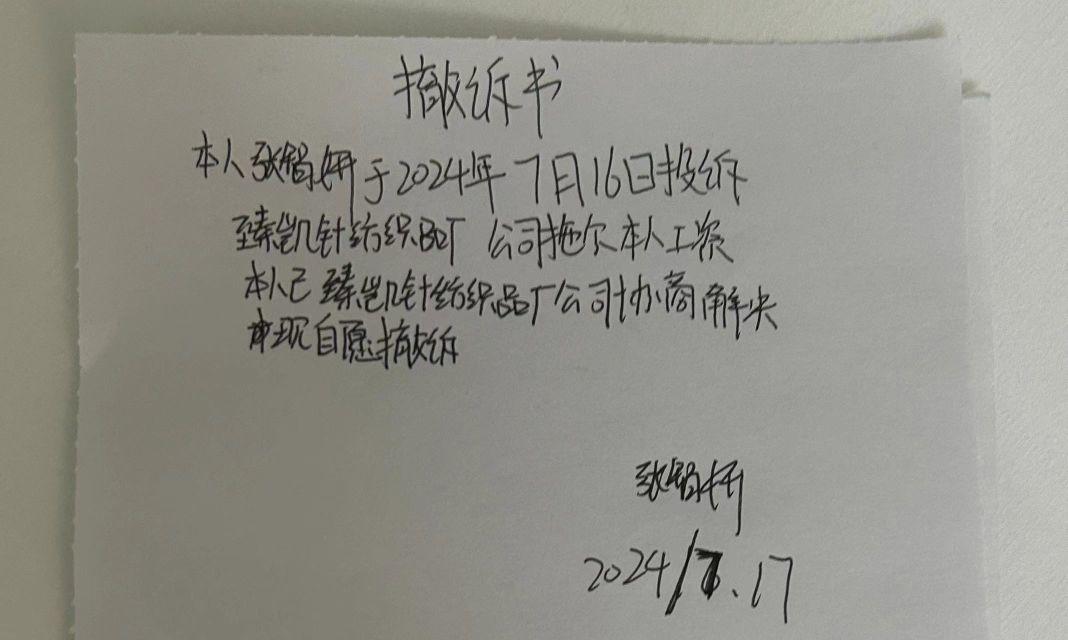 撤诉书
本人张智妍于2024年7月16日投诉
臻凯针纺织品厂公司拖欠本人工资
本人已臻凯针纺织品厂公司协商解决
现自愿撤诉
张智妍
2024/7.17